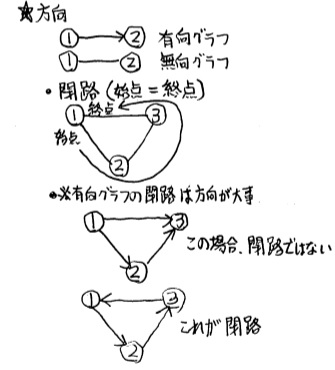 ☆方向
① ② 有向グラフ
① ② 無向グラフ
・閉路(始点=終点)
① 終点 ③
始点
②
・※有向グラフの閉路は方向が大事
① ③
この場合、閉路ではない
②
① ③
これが閉路
②